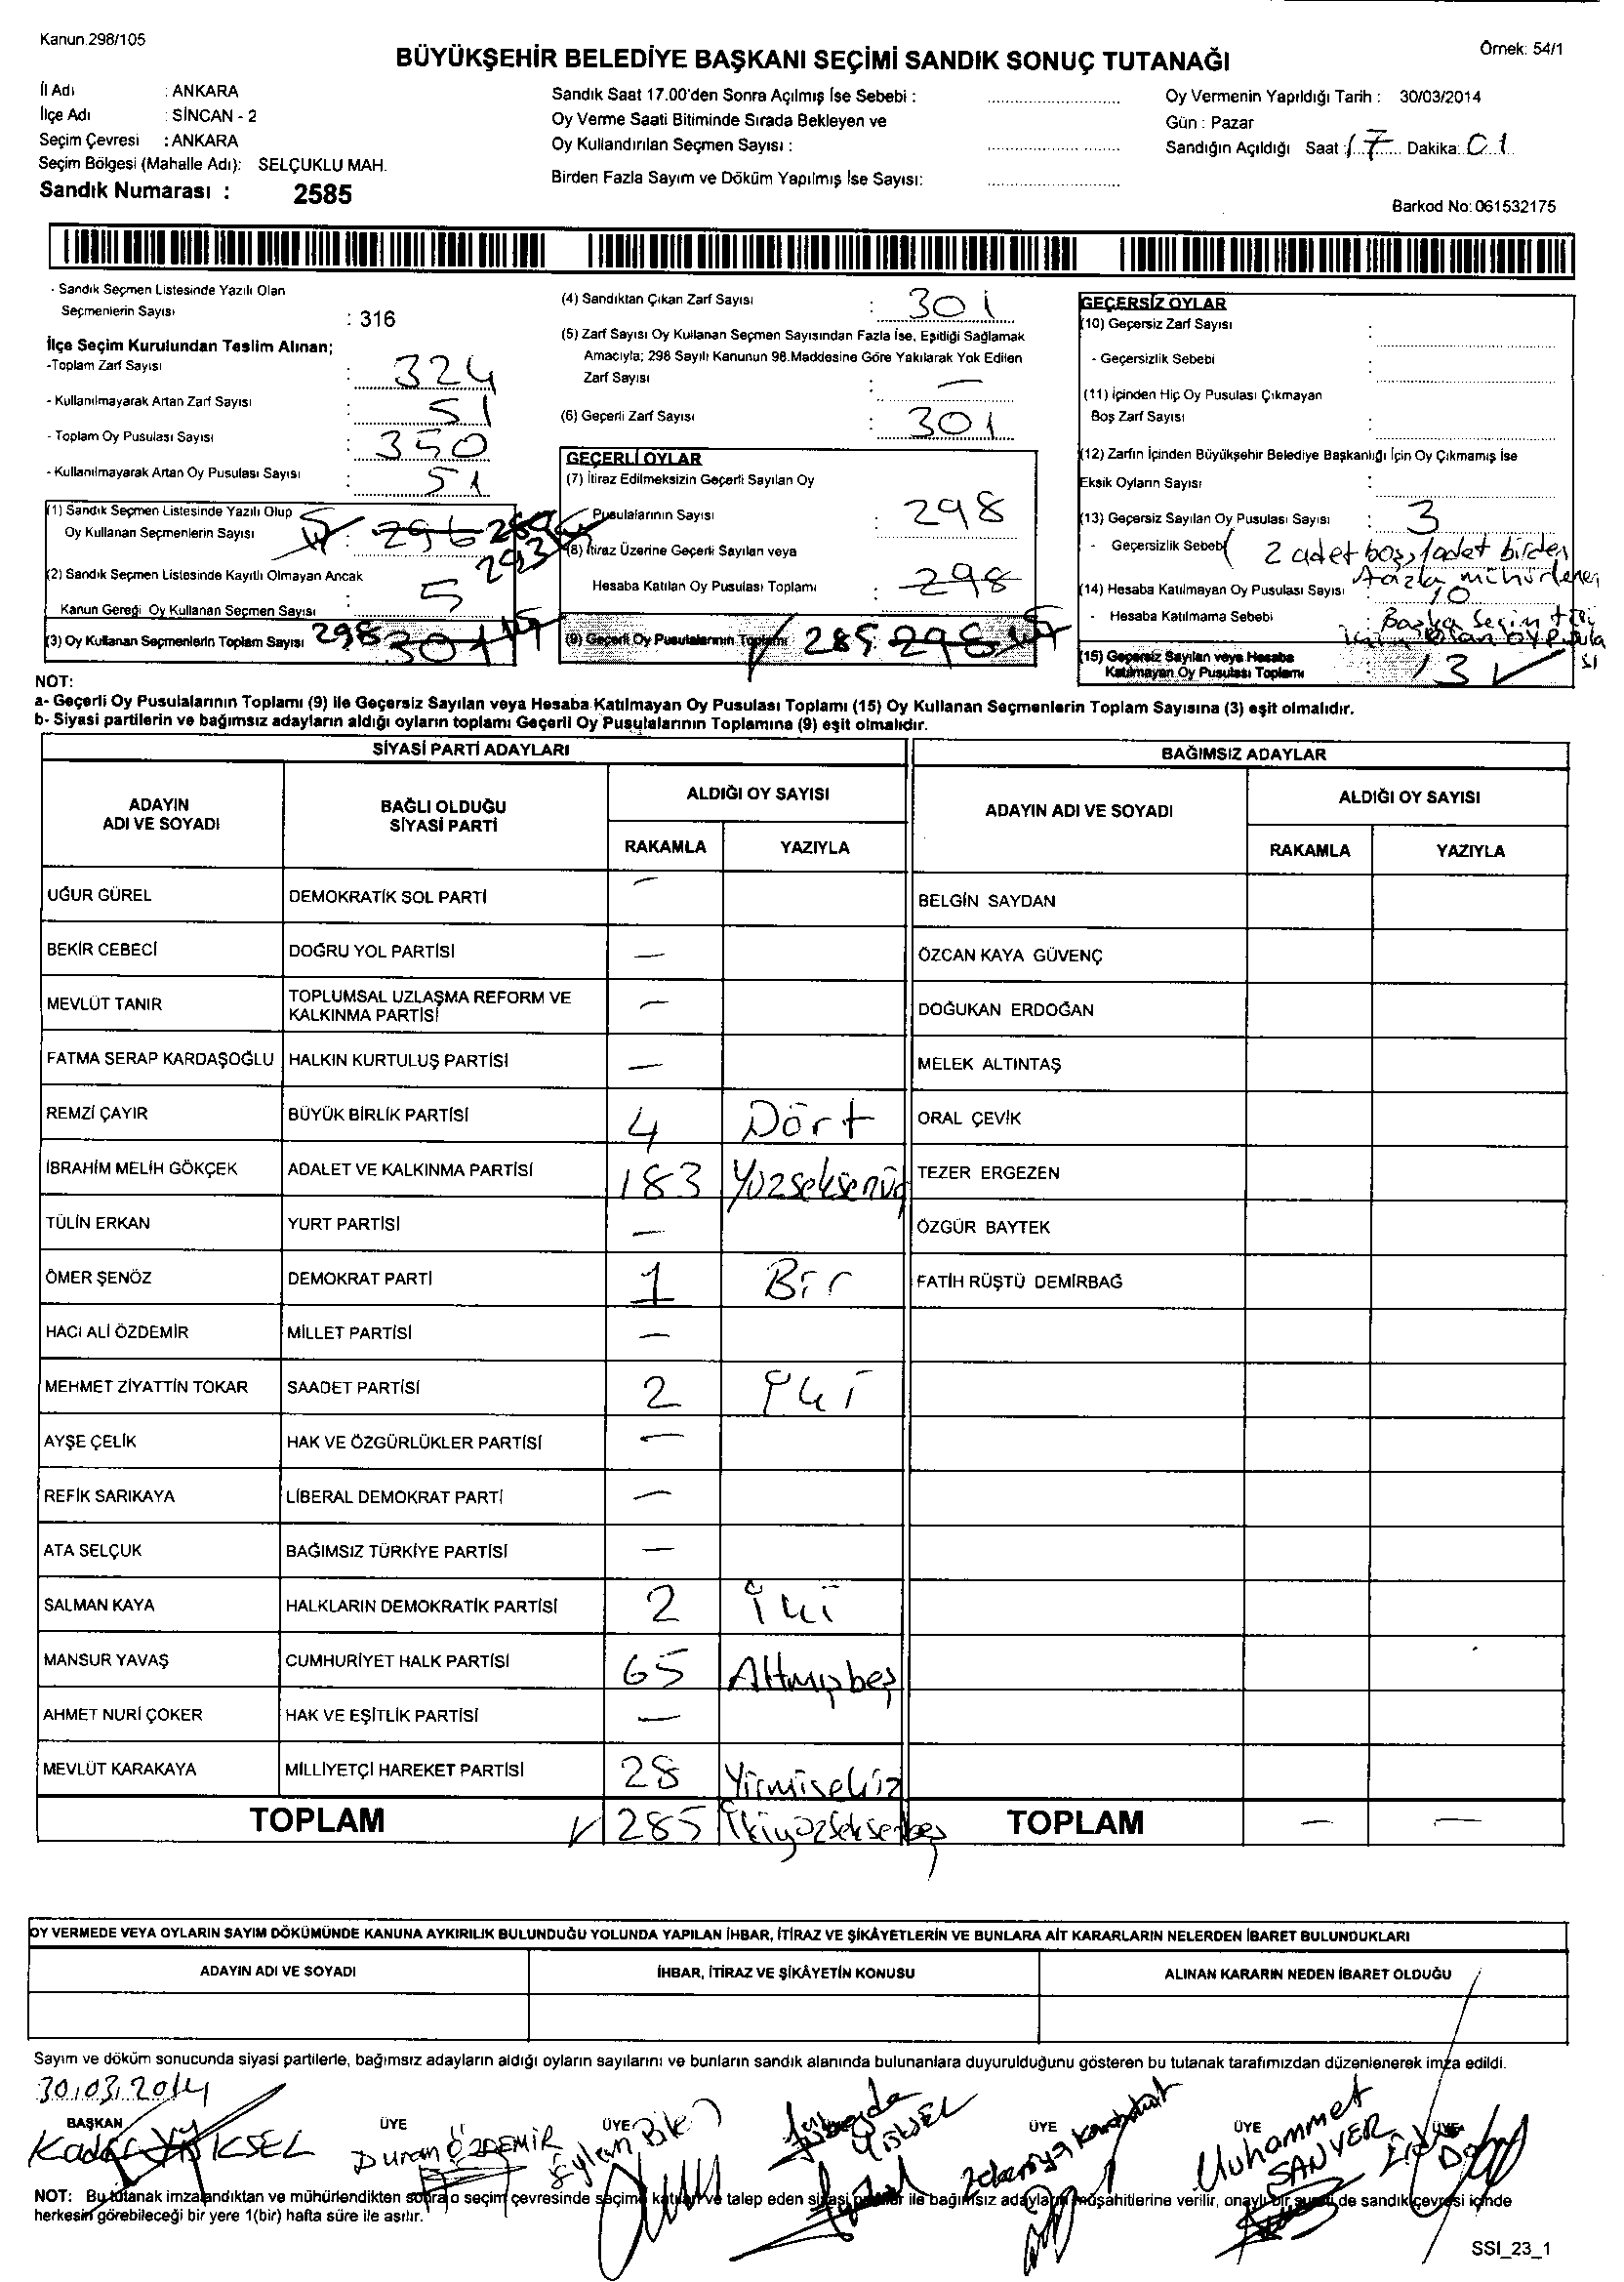 Kanun.298/105
Örnek: 54/1
BÜYÜKŞEHİR BELEDİYE BAŞKANI SEÇİMİ SANDIK SONUÇ TUTANAĞI
İl Adı : ANKARA
İlçe Adı : SİNCAN - 2
Seçim Çevresi : ANKARA
Seçim Bölgesi (Mahalle Adı): SELÇUKLU MAH.
Sandık Numarası : 2585
Sandık Saat 17.00'den Sonra Açılmış İse Sebebi :
Oy Verme Saati Bitiminde Sırada Bekleyen ve
Oy Kullandırılan Seçmen Sayısı :
Birden Fazla Sayım ve Döküm Yapılmış İse Sayısı:
Oy Vermenin Yapıldığı Tarih : 30/03/2014
Gün : Pazar
Sandığın Açıldığı Saat : 17 Dakika: 01
Barkod No: 061532175
- Sandık Seçmen Listesinde Yazılı Olan
Seçmenlerin Sayısı : 316
İlçe Seçim Kurulundan Teslim Alınan;
-Toplam Zarf Sayısı : 324
- Kullanılmayarak Artan Zarf Sayısı : 51
- Toplam Oy Pusulası Sayısı : 350
- Kullanılmayarak Artan Oy Pusulası Sayısı : 51
(1) Sandık Seçmen Listesinde Yazılı Olup
Oy Kullanan Seçmenlerin Sayısı : 296 293
(2) Sandık Seçmen Listesinde Kayıtlı Olmayan Ancak
Kanun Gereği Oy Kullanan Seçmen Sayısı : 5
(3) Oy Kullanan Seçmenlerin Toplam Sayısı 298 301
(4) Sandıktan Çıkan Zarf Sayısı : 301
(5) Zarf Sayısı Oy Kullanan Seçmen Sayısından Fazla İse, Eşitliği Sağlamak
Amacıyla; 298 Sayılı Kanunun 98.Maddesine Göre Yakılarak Yok Edilen
Zarf Sayısı : —
(6) Geçerli Zarf Sayısı : 301
GEÇERLİ OYLAR
(7) İtiraz Edilmeksizin Geçerli Sayılan Oy
Pusulalarının Sayısı : 298
(8) İtiraz Üzerine Geçerli Sayılan veya
Hesaba Katılan Oy Pusulası Toplamı : 298
(9) Geçerli Oy Pusulalarının Toplamı 285 298
GEÇERSİZ OYLAR
(10) Geçersiz Zarf Sayısı :
- Geçersizlik Sebebi :
(11) İçinden Hiç Oy Pusulası Çıkmayan
Boş Zarf Sayısı :
(12) Zarfın İçinden Büyükşehir Belediye Başkanlığı İçin Oy Çıkmamış İse
Eksik Oyların Sayısı :
(13) Geçersiz Sayılan Oy Pusulası Sayısı : 3
- Geçersizlik Sebebi 2 adet boş, 1 adet birden
fazla mühürlenen
(14) Hesaba Katılmayan Oy Pusulası Sayısı : 10
- Hesaba Katılmama Sebebi : Başka seçim türü
için olan oy pusulası
(15) Geçersiz Sayılan veya Hesaba
Katılmayan Oy Pusulası Toplamı : 13
NOT:
a- Geçerli Oy Pusulalarının Toplamı (9) ile Geçersiz Sayılan veya Hesaba Katılmayan Oy Pusulası Toplamı (15) Oy Kullanan Seçmenlerin Toplam Sayısına (3) eşit olmalıdır.
b- Siyasi partilerin ve bağımsız adayların aldığı oyların toplamı Geçerli Oy Pusulalarının Toplamına (9) eşit olmalıdır.
SİYASİ PARTİ ADAYLARI
ADAYIN ADI VE SOYADI BAĞLI OLDUĞU SİYASİ PARTİ ALDIĞI OY SAYISI
RAKAMLA YAZIYLA
UĞUR GÜREL DEMOKRATİK SOL PARTİ —
BEKİR CEBECİ DOĞRU YOL PARTİSİ —
MEVLÜT TANIR TOPLUMSAL UZLAŞMA REFORM VE KALKINMA PARTİSİ —
FATMA SERAP KARDAŞOĞLU HALKIN KURTULUŞ PARTİSİ —
REMZİ ÇAYIR BÜYÜK BİRLİK PARTİSİ 4 Dört
İBRAHİM MELİH GÖKÇEK ADALET VE KALKINMA PARTİSİ 183 Yüzseksenüç
TÜLİN ERKAN YURT PARTİSİ —
ÖMER ŞENÖZ DEMOKRAT PARTİ 1 Bir
HACI ALİ ÖZDEMİR MİLLET PARTİSİ —
MEHMET ZİYATTİN TOKAR SAADET PARTİSİ 2 İki
AYŞE ÇELİK HAK VE ÖZGÜRLÜKLER PARTİSİ —
REFİK SARIKAYA LİBERAL DEMOKRAT PARTİ —
ATA SELÇUK BAĞIMSIZ TÜRKİYE PARTİSİ —
SALMAN KAYA HALKLARIN DEMOKRATİK PARTİSİ 2 İki
MANSUR YAVAŞ CUMHURİYET HALK PARTİSİ 65 Altmışbeş
AHMET NURİ ÇOKER HAK VE EŞİTLİK PARTİSİ —
MEVLÜT KARAKAYA MİLLİYETÇİ HAREKET PARTİSİ 28 Yirmisekiz
TOPLAM 285 İkiyüzseksenbeş
BAĞIMSIZ ADAYLAR
ADAYIN ADI VE SOYADI ALDIĞI OY SAYISI
RAKAMLA YAZIYLA
BELGİN SAYDAN
ÖZCAN KAYA GÜVENÇ
DOĞUKAN ERDOĞAN
MELEK ALTINTAŞ
ORAL ÇEVİK
TEZER ERGEZEN
ÖZGÜR BAYTEK
FATİH RÜŞTÜ DEMİRBAĞ
TOPLAM — —
OY VERMEDE VEYA OYLARIN SAYIM DÖKÜMÜNDE KANUNA AYKIRILIK BULUNDUĞU YOLUNDA YAPILAN İHBAR, İTİRAZ VE ŞİKÂYETLERİN VE BUNLARA AİT KARARLARIN NELERDEN İBARET BULUNDUKLARI
ADAYIN ADI VE SOYADI İHBAR, İTİRAZ VE ŞİKÂYETİN KONUSU ALINAN KARARIN NEDEN İBARET OLDUĞU
Sayım ve döküm sonucunda siyasi partilerle, bağımsız adayların aldığı oyların sayılarını ve bunların sandık alanında bulunanlara duyurulduğunu gösteren bu tutanak tarafımızdan düzenlenerek imza edildi.
30.03.2014
BAŞKAN ÜYE ÜYE ÜYE ÜYE ÜYE
YÜKSEL Duran ÖZDEMİR Eylem YÜKSEL Zekeriya Muhammet SANYER
NOT: Bu tutanak imzalandıktan ve mühürlendikten sonra o seçim çevresinde seçime katılan ve talep eden siyasi partiler ile bağımsız adayların müşahitlerine verilir, onaylı bir sureti de sandık çevresi içinde
herkesin görebileceği bir yere 1(bir) hafta süre ile asılır.
SSI_23_1